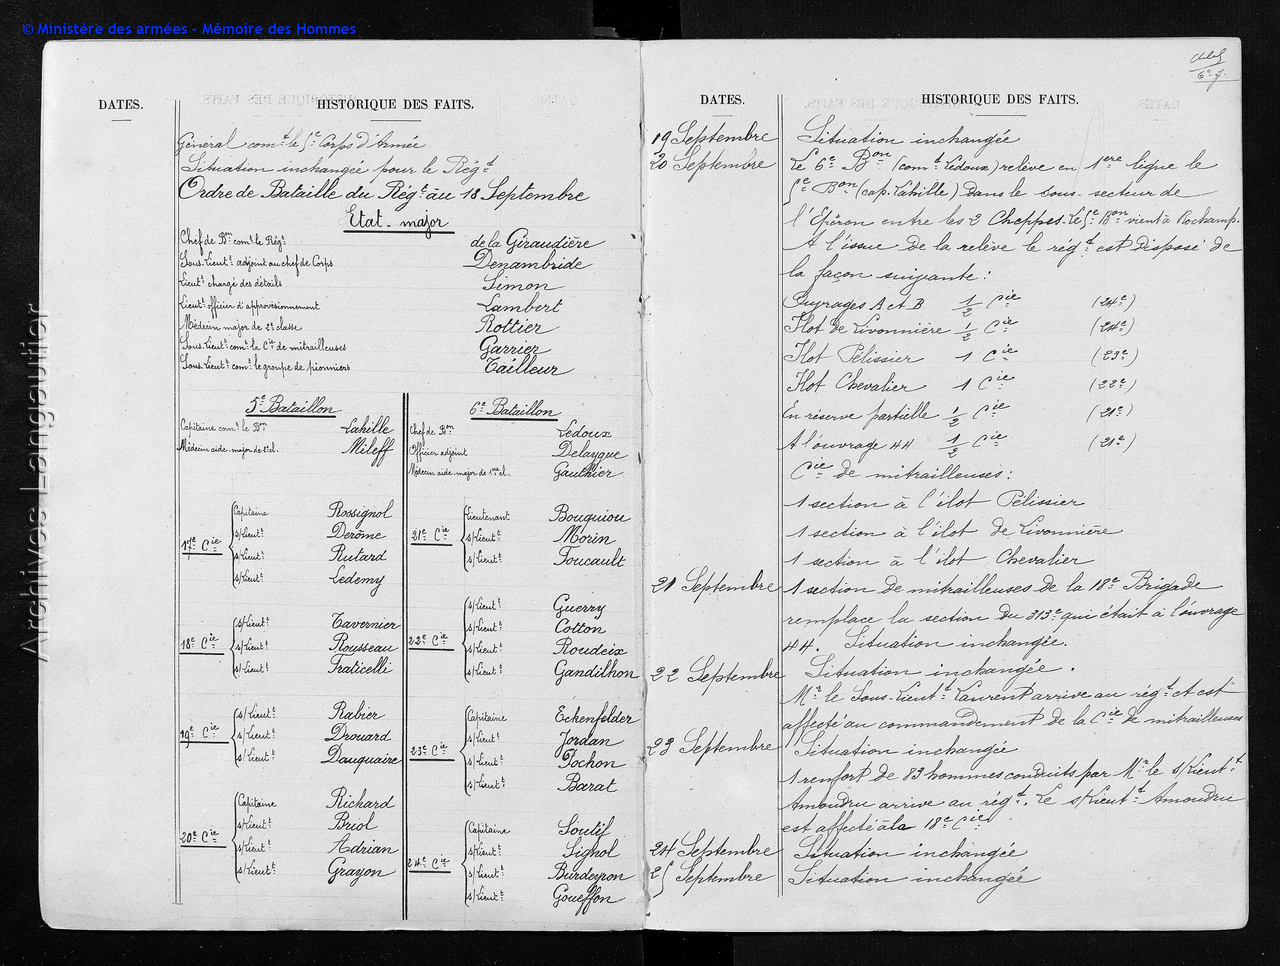 © Ministère des armées - Mémoire des Hommes
Archives Langautier
DATES.
HISTORIQUE DES FAITS.
Général comt le 5e Corps d'Armée
Situation inchangée pour le Régt
Ordre de Bataille du Régt au 18 Septembre
Etat-major
Chef de Bon comt le Régt de la Giraudière
Sous-Lieutt adjoint au chef de Corps Denambride
Lieutt chargé des détails Simon
Lieutt officier d'approvisionnement Lambert
Médecin major de 2e classe Rottier
Sous-Lieutt comt la Cie de mitrailleuses Garrier
Sous-Lieutt comt le groupe de pionniers Tailleur
5e Bataillon
Capitaine comt le Bon Lahille
Médecin aide-major de 2e cl. Mileff
17e Cie
Capitaine Rossignol
s/Lieutt Derôme
s/Lieutt Rutard
s/Lieutt Ledemy
18e Cie
s/Lieutt Tavernier
s/Lieutt Rousseau
s/Lieutt Fraticelli
19e Cie
s/Lieutt Rabier
s/Lieutt Drouard
s/Lieutt Dauquaire
20e Cie
Capitaine Richard
s/Lieutt Briol
s/Lieutt Adrian
s/Lieutt Grayon
6e Bataillon
Chef de Bon Ledoux
Officier adjoint Delaygue
Médecin aide-major de 1ere cl. Gauthier
21e Cie
Lieutenant Bouquiou
s/Lieutt Morin
s/Lieutt Foucault
22e Cie
s/Lieutt Guerry
s/Lieutt Cotton
s/Lieutt Roudeix
s/Lieutt Gandilhon
23e Cie
Capitaine Eckenfelder
s/Lieutt Jordan
s/Lieutt Pochon
s/Lieutt Barat
24e Cie
Capitaine Soutif
s/Lieutt Signol
s/Lieutt Burdeyron
s/Lieutt Goueffon
DATES.
HISTORIQUE DES FAITS.
19 Septembre Situation inchangée
20 Septembre Le 6e Bon (comt Ledoux) relève en 1ere ligne le
5e Bon (cap. Lahille) dans le sous-secteur de
l'Eperon entre les 2 Cheppes. Le 5e Bon vient à Rochamp.
A l'issue de la relève le régt est disposé de
la façon suivante :
Ouvrages A et B 1/2 Cie (24e)
Ilot de Livonnière 1/2 Cie (24e)
Ilot Pélissier 1 Cie (23e)
Ilot Chevalier 1 Cie (22e)
En réserve partielle 1/2 Cie (21e)
A l'ouvrage 44 1/2 Cie (21e)
Cie de mitrailleuses :
1 section à l'ilot Pélissier
1 section à l'ilot de Livonnière
1 section à l'ilot Chevalier
21 Septembre 1 section de mitrailleuses de la 18e Brigade
remplace la section du 313e qui était à l'ouvrage
44. Situation inchangée.
22 Septembre Situation inchangée.
Mr le Sous-Lieutt Laurent arrive au régt et est
affecté au commandement de la Cie de mitrailleuses
23 Septembre Situation inchangée
1 renfort de 83 hommes conduits par Mr le s/Lieutt
Amoudru arrive au régt. Le s/Lieutt Amoudru
est affecté à la 18e Cie
24 Septembre Situation inchangée
25 Septembre Situation inchangée